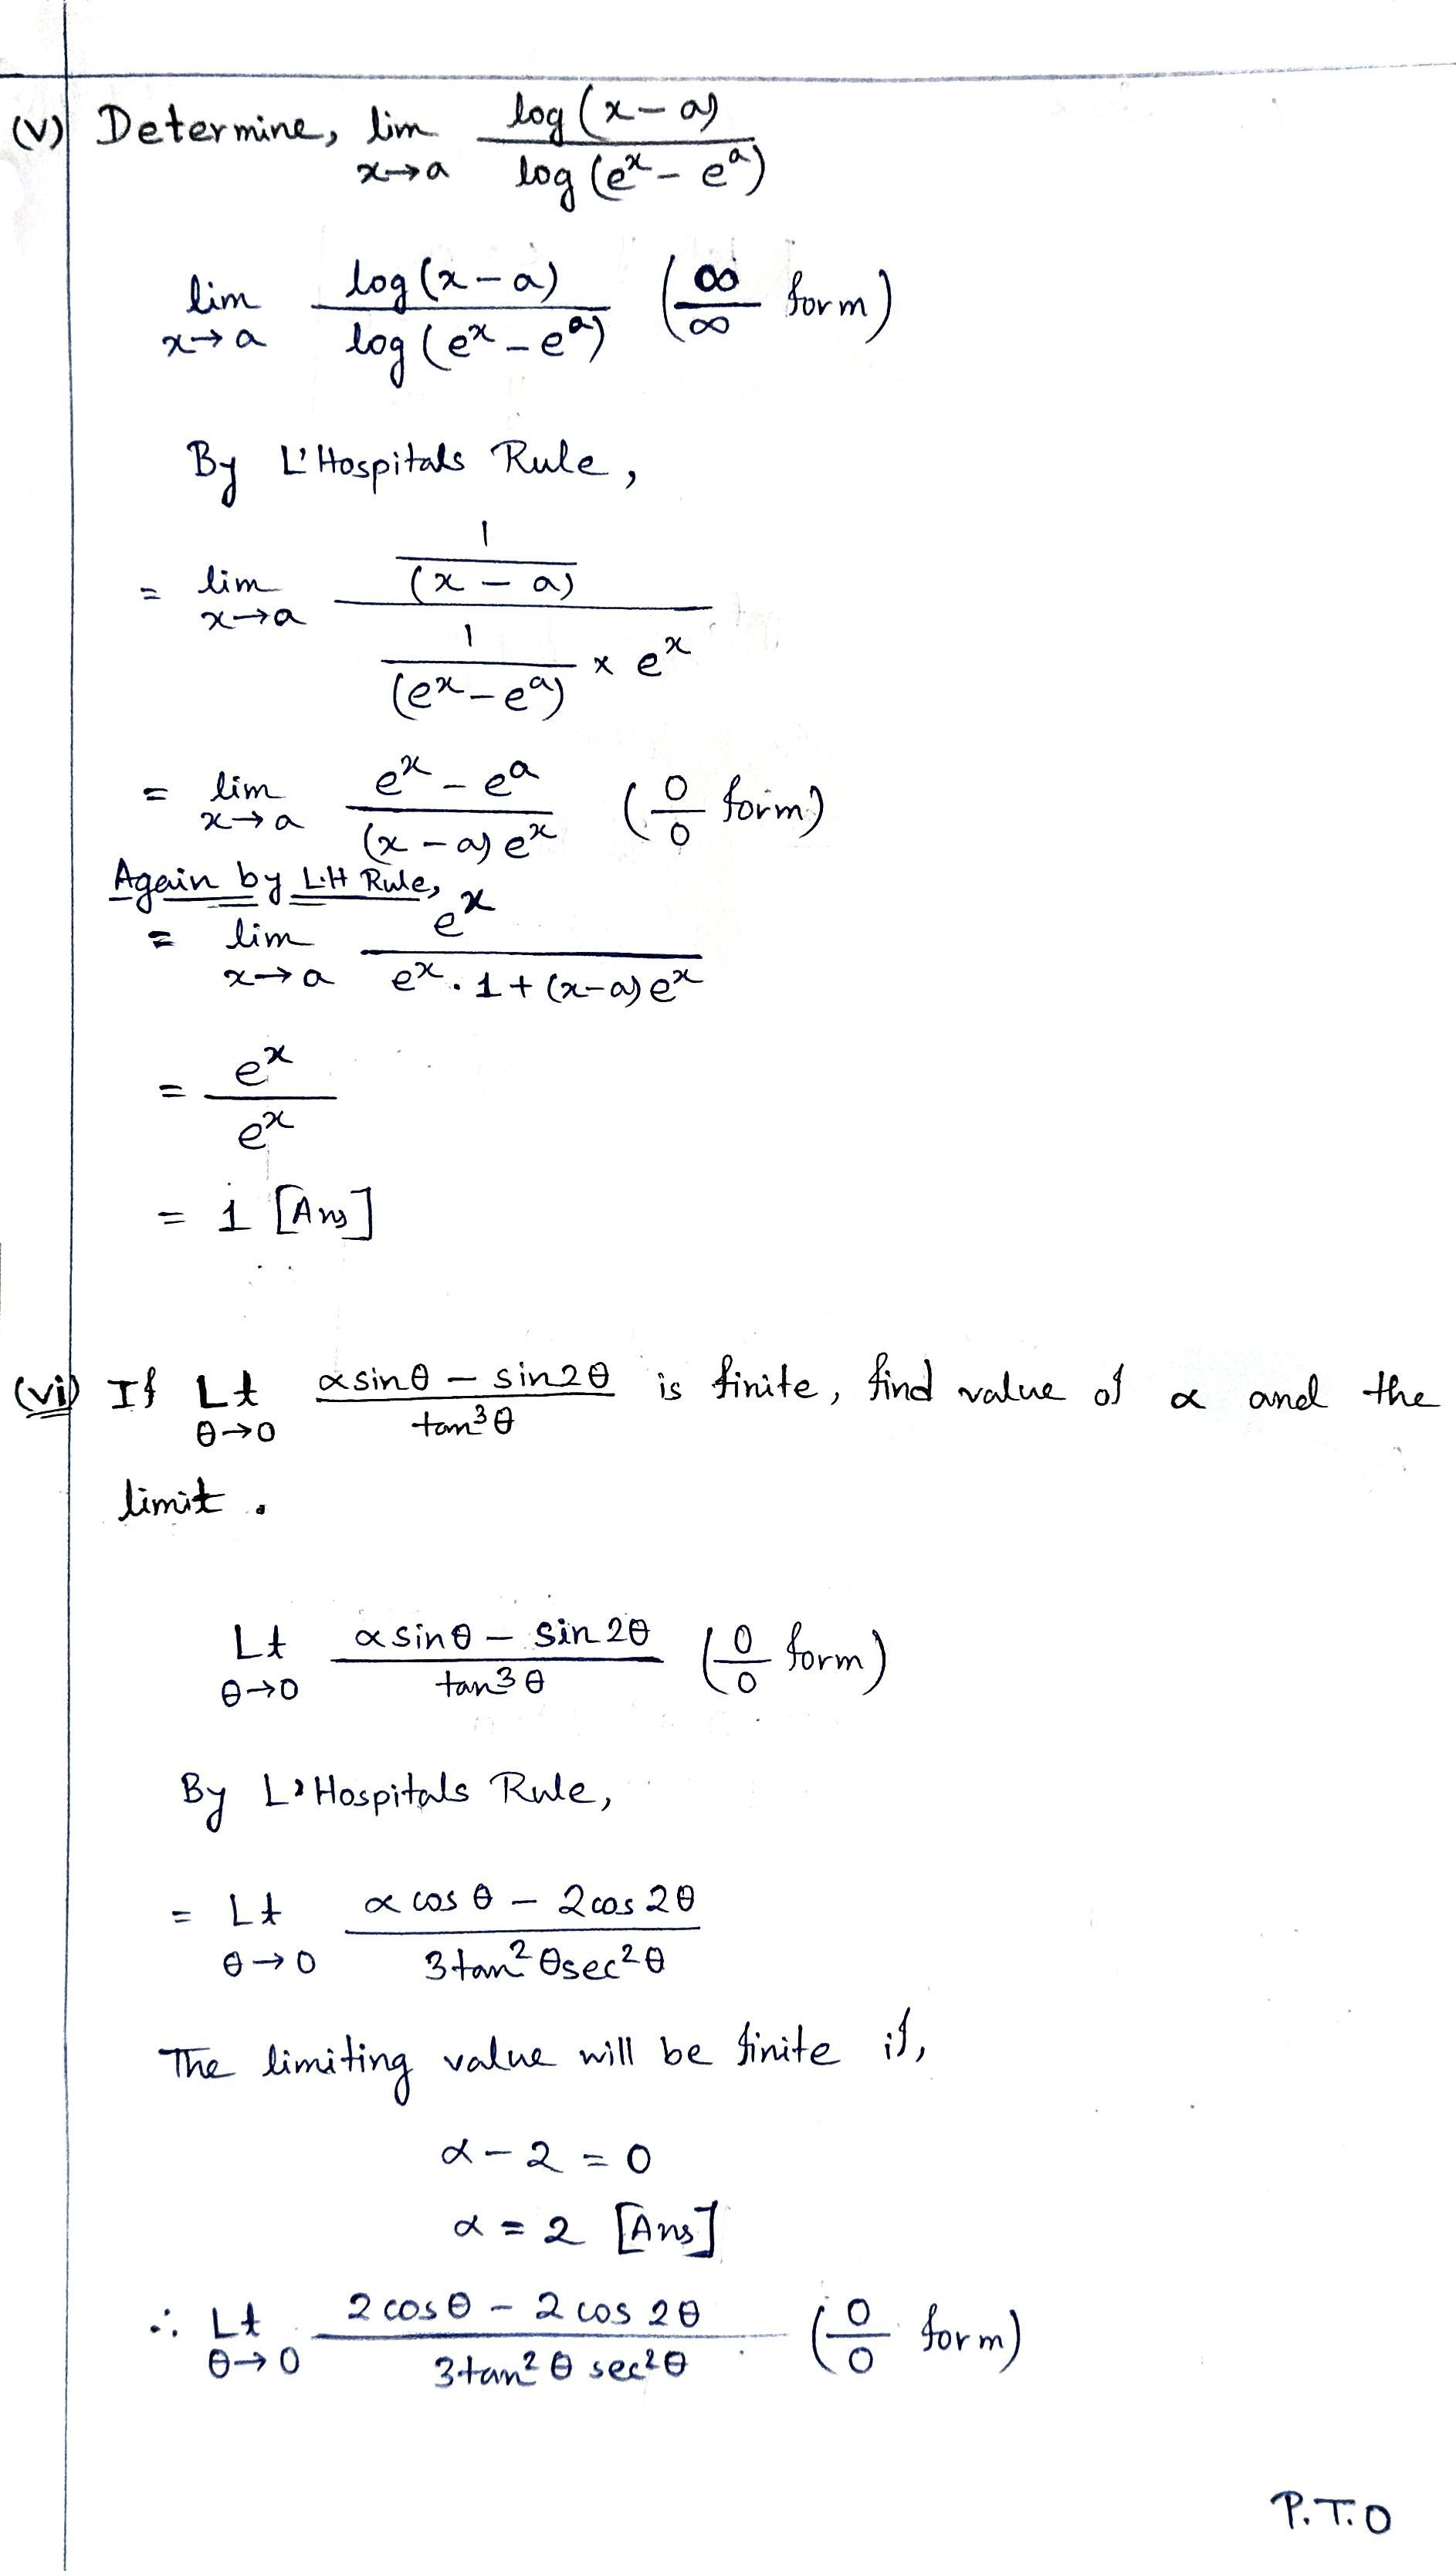 (v) Determine, lim x→a log(x-a) / log(eˣ - eᵃ)
lim x→a log(x-a) / log(eˣ - eᵃ) (∞/∞ form)
By L'Hospitals Rule,
= lim x→a (1/(x-a)) / (1/(eˣ-eᵃ) × eˣ)
= lim x→a (eˣ - eᵃ) / ((x-a) eˣ) (0/0 form)
Again by L.H Rule,
= lim x→a eˣ / (eˣ . 1 + (x-a) eˣ)
= eˣ / eˣ
= 1 [Ans]
(vi) If Lt θ→0 (αsinθ - sin2θ) / tan³θ is finite, find value of α and the
limit .
Lt θ→0 (αsinθ - sin2θ) / tan³θ (0/0 form)
By L'Hospitals Rule,
= Lt θ→0 (α cosθ - 2cos2θ) / 3tan²θsec²θ
The limiting value will be finite if,
α - 2 = 0
α = 2 [Ans]
∴ Lt θ→0 (2cosθ - 2cos2θ) / 3tan²θ sec²θ (0/0 form)
P.T.O